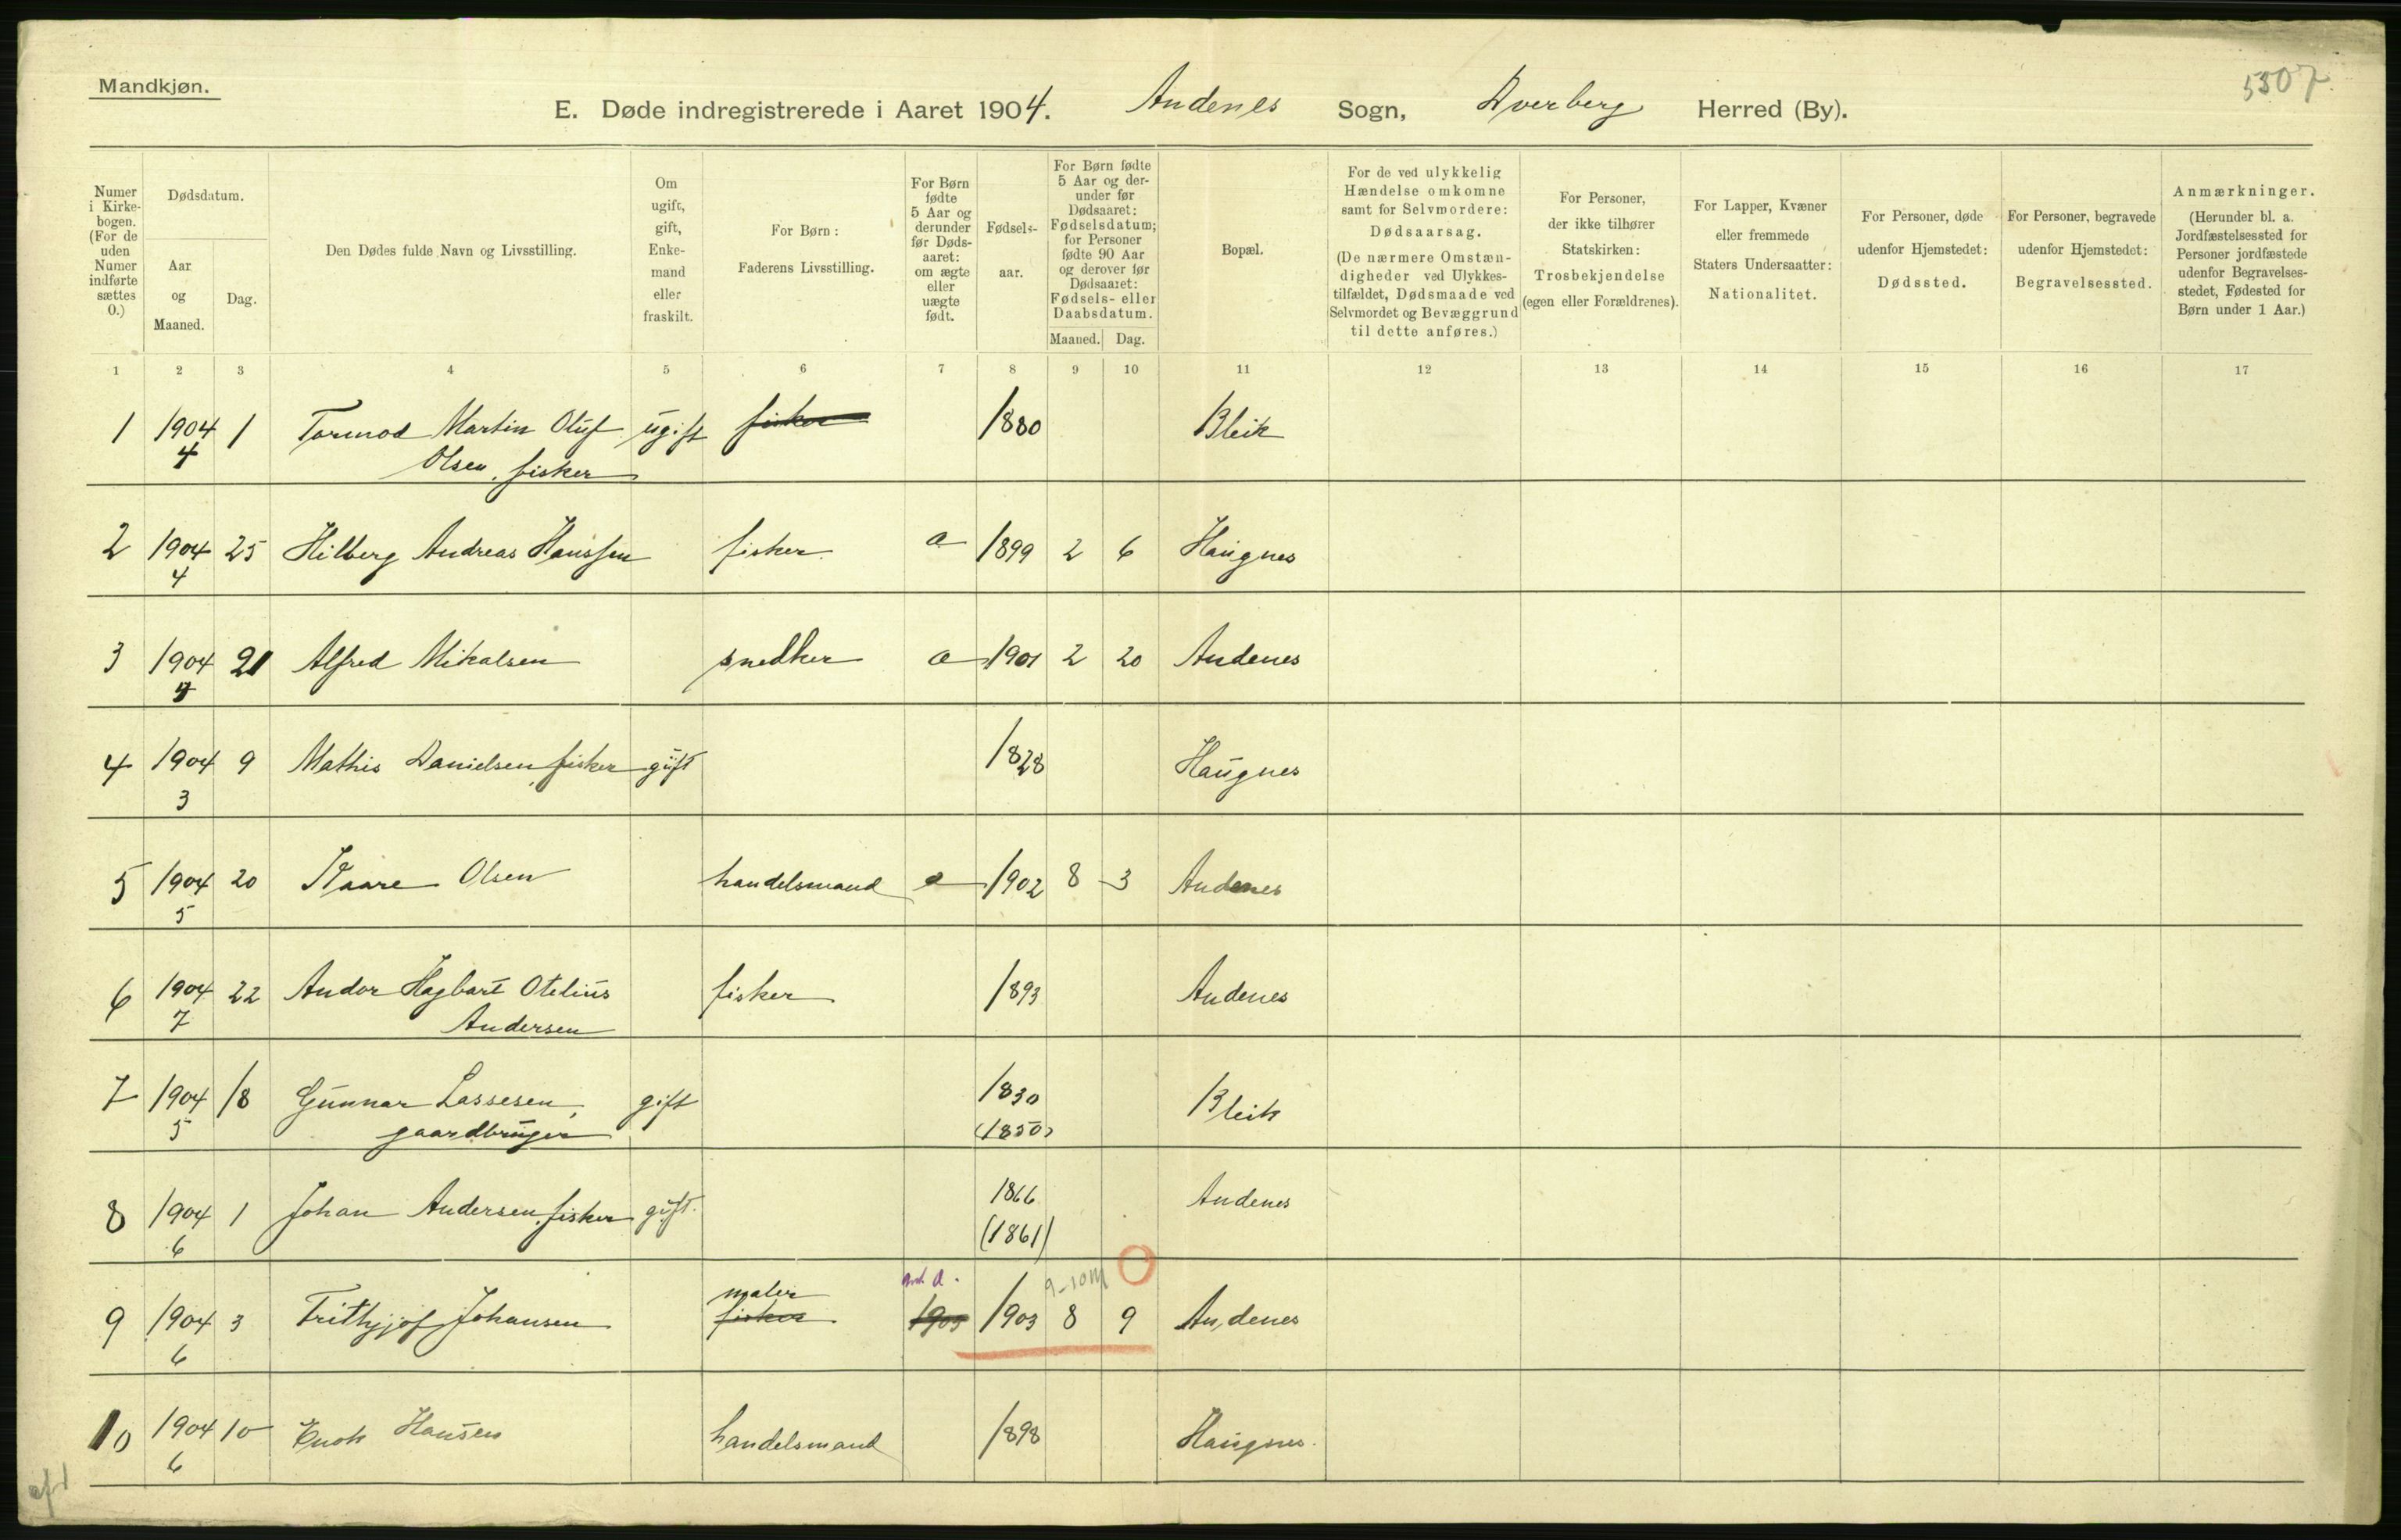 Mandkjøn.
5507
E. Døde indregistrerede i Aaret 1904. Andenes Sogn, Dverberg Herred (By).
Numer i Kirkebogen. (For de uden Numer indførte sættes 0.)
Dødsdatum.
Aar og Maaned.
Dag.
Den Dødes fulde Navn og Livsstilling.
Om ugift, gift, Enkemand eller fraskilt.
For Børn: Faderens Livsstilling.
For Børn fødte 5 Aar og derunder før Dødsaaret: om ægte eller uægte født.
Fødselsaar.
For Børn fødte 5 Aar og derunder før Dødsaaret: Fødselsdatum; for Personer fødte 90 Aar og derover før Dødsaaret: Fødsels- eller Daabsdatum.
Maaned. Dag.
Bopæl.
For de ved ulykkelig Hændelse omkomne samt for Selvmordere: Dødsaarsag. (De nærmere Omstændigheder ved Ulykkestilfældet, Dødsmaade ved Selvmordet og Bevæggrund til dette anføres.)
For Personer, der ikke tilhører Statskirken: Trosbekjendelse (egen eller Forældrenes).
For Lapper, Kvæner eller fremmede Staters Undersaatter: Nationalitet.
For Personer, døde udenfor Hjemstedet: Dødssted.
For Personer, begravede udenfor Hjemstedet: Begravelsessted.
Anmærkninger. (Herunder bl. a. Jordfæstelsessted for Personer jordfæstede udenfor Begravelsesstedet, Fødested for Børn under 1 Aar.)
1 2 3 4 5 6 7 8 9 10 11 12 13 14 15 16 17
1 1904 1 Tormod Martin Oluf ugift fisker 1880 Bleik
4 Olsen, fisker
2 1904 25 Hilberg Andreas Hanssen fisker a 1899 2 6 Haugnes
4
3 1904 21 Alfred Mikalsen snedker a 1901 2 20 Andenes
4
4 1904 9 Mathis Danielsen, fisker gift 1828 Haugnes
3
5 1904 20 Kaare Olsen handelsmand a 1902 8 3 Andenes
5
6 1904 22 Andor Hagbart Otelius fisker 1893 Andenes
7 Andersen
7 1904 18 Gunnar Lassesen, gift 1830 Bleik
5 gaardbruger (1850)
8 1904 1 Johan Andersen, fisker gift. 1866 Andenes
6 (1861)
maler a. 9-10 M
9 1904 3 Frithjof Johansen fisker 1903 1903 8 9 Andenes
6
10 1904 10 Enok Hansen handelsmand 1898 Haugnes.
6